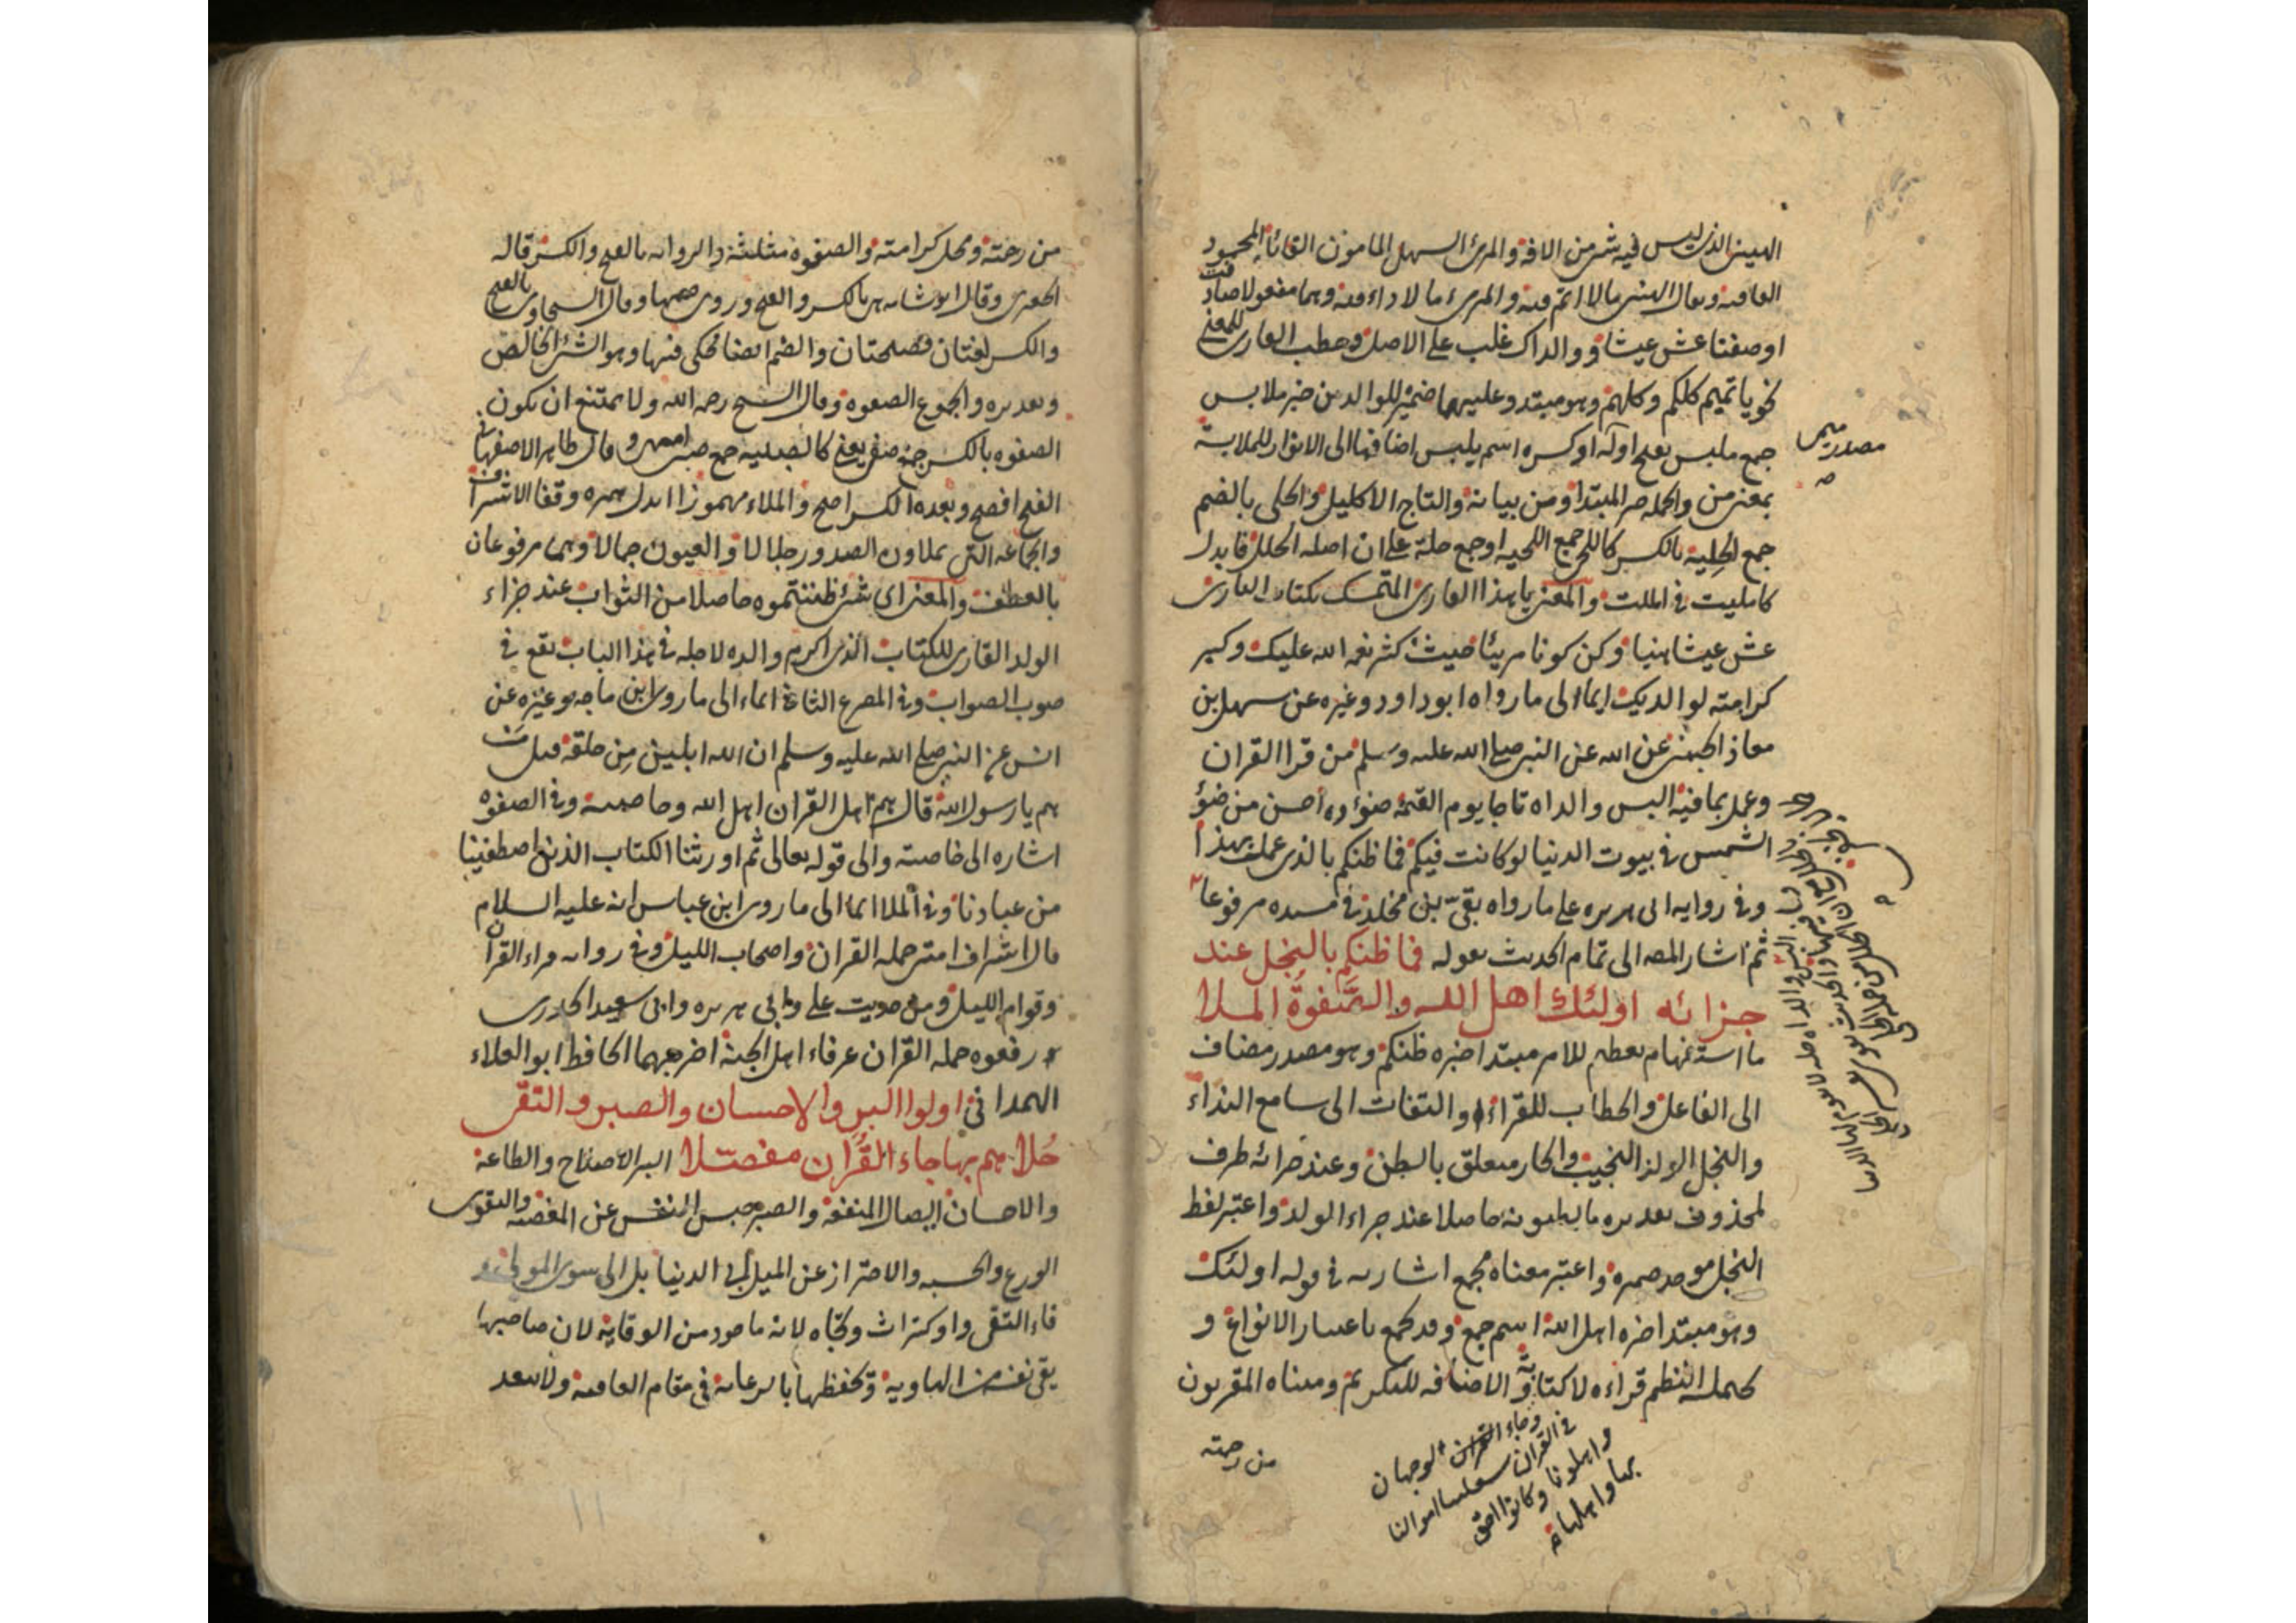 الهنيئ الذي ليس فيه شئ من الافة والمرئ السهل المأمون القائلة المحمود
العاقبة ويقال الهنئ ما لا اثم فيه والمرئ ما لا داء فيه وهما مفعولا صادفت
او صفتا عش عيشا ووالداك غلب على الاصل وخطب القارئ للمعنى
نحو يا تميم كلكم وكلهم وهو مبتدا وعليهما ضمير للوالدين خبر ملابس
جمع ملبس بفتح اوله او كسره اسم يلبس اضافتها الى الانوار للملابسة
بمعنى من والجملة خبر المبتدا ومن بيانه والتاج الاكليل والحلى بالضم
جمع الحلية بالكسر كاللحى جمع اللحية او جمع حلة على ان اصله الحلل فابدل
كامليت في امللت والمعنى يا هذا القارئ المتمسك بكتاب البارئ
عش عيشا هنيا وكن كونا مريئا حيث كثر نعم الله عليك وكبر
كرامته لوالديك ايماء الى ما رواه ابو داود وغيره عن سهل بن
معاذ الجهني عن الله عن النبي صلى الله عليه وسلم من قرا القران
وعمل بما فيه البس والداه تاجا يوم القيمة ضوؤه احسن من ضوء
الشمس في بيوت الدنيا لو كانت فيكم فما ظنكم بالذي عمل بهذا
وفي رواية ابي هريرة على ما رواه بقي بن مخلد في مسنده مرفوعا
ثم اشار المصـ الى تمام الحديث بقوله فما ظنكم بالنجل عند
جزائه اولئك اهل الله والصفوة الملا
ما استفهام تعظيم للامر مبتدا خبره ظنكم وهو مصدر مضاف
الى الفاعل والخطاب للقراء او التفات الى سامع النداء
والنجل الولد النجيب والجار متعلق بالظن وعند جزائه ظرف
لمحذوف تقديره ما تظنونه حاصلا عند جزاء الولد واعتبر لفظ
النجل موحد ضميره واعتبر معناه فجمع اشارته في قوله اولئك
وهو مبتدا خبره اهل الله اسم جمع وقد يجمع باعتبار الانواع و
يحمله النظم قراءة لا كتابة والاضافة للتكريم ومعناه المقربون
من رحمته
مصدر ميمي
وجاء الوجهان
في القران شغلتنا اموالنا
واهلونا وكانوا احق
بها واهلها
من رحمته ومحل كرامته والصفوة مثلثة والرواية بالفتح والكسر قاله
الجعبري وقال ابو شامة هي بالكسر والفتح وروى ضمها وقال السخاوي بالفتح
والكسر لغتان فصيحتان والضم ايضا محكي فيها وهو الشئ الخالص
وتقديره والجموع الصفوة وقال الشيخ رحمه الله ولا يمتنع ان يكون
الصفوة بالكسر جمع صفي يعني كالصبية جمع صبي وقال طاهر الاصفهاني
الفتح افصح وبعده الكسر اصح والملاء مهموزا ابدل همزه وقفا الاشراف
والجماعة التي يملاون الصدور جلالا والعيون جمالا وهما مرفوعان
بالعطف والمعنى اي شئ ظننتموه حاصلا من الثواب عند جزاء
الولد القارئ للكتاب الذي اكرم والده لاجله في هذا الباب يقع في
صوب الصواب وفي المصرع الثاني ايماء الى ما روى ابن ماجه وغيره عن
انس عن النبي صلى الله عليه وسلم ان الله اهلين من خلقه قيل من
هم يا رسول الله قال هم اهل القران اهل الله وخاصته وفي الصفوة
اشارة الى خاصته والى قوله تعالى ثم اورثنا الكتاب الذين اصطفينا
من عبادنا وفي الملا ايما الى ما روى ابن عباس انه عليه السلام
قال اشراف امتي حملة القران واصحاب الليل وفي رواية قراء القران
وقوام الليل ومن حديث علي وابي هريرة وابي سعيد الخدري
رفعوه حملة القران عرفاء اهل الجنة اخرجهما الحافظ ابو العلاء
الهمداني اولوا البر والاحسان والصبر والتقى
حلاهم بها جاء القران مفصلا البر الاصلاح والطاعة
والاحسان ايصال المنفعة والصبر حبس النفس عن المعصية والتقوى
الورع والخشية والاحتراز عن الميل الى الدنيا بل الى سوى المولى و
فاء التقى واو كتراث وتجاه لانه ماخوذ من الوقاية لان صاحبها
يقي نفسه من الهاوية وتحفظها بالرعاية في مقام العافية ولا يبعد